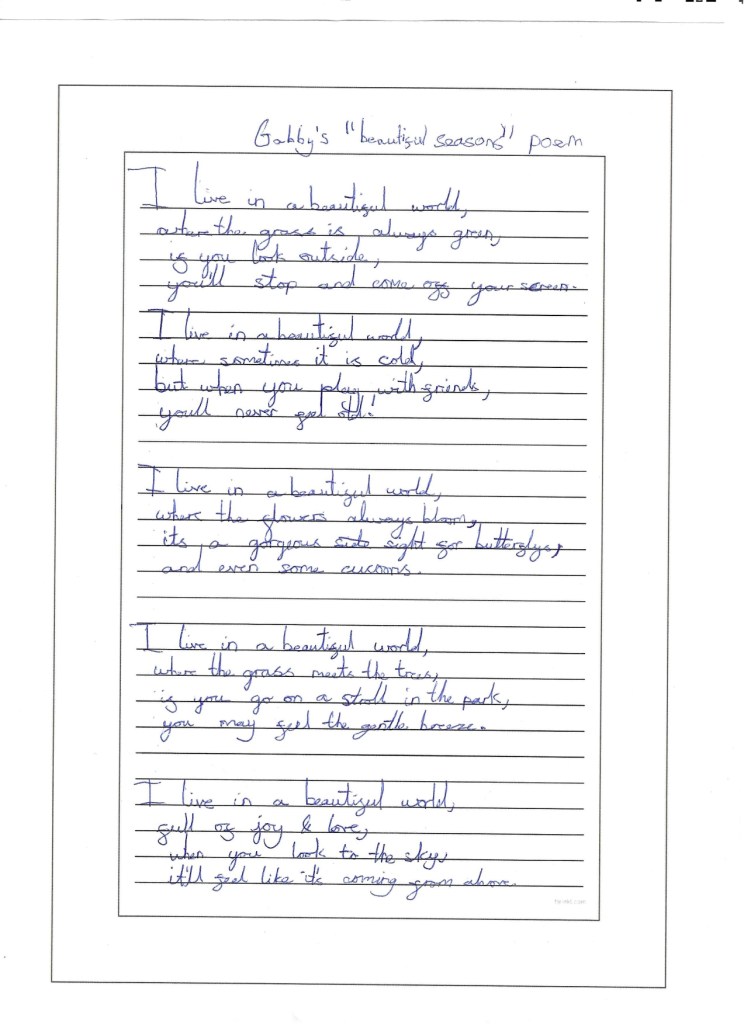 Gabby's "beautiful seasons" poem
I live in a beautiful world,
where the grass is always green,
if you look outside,
you'll stop and come off your screen.
I live in a beautiful world,
where sometimes it is cold,
but when you play with friends,
youll never feel old!
I live in a beautiful world,
where the flowers always bloom,
its a gorgeous sight for butterflys,
and even some cucoons.
I live in a beautiful world,
where the grass meets the trees,
if you go on a stroll in the park,
you may feel the gentle breeze.
I live in a beautiful world,
full of joy & love,
when you look to the sky,
it'll feel like it's coming from above.